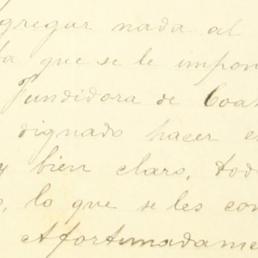 gregar nada al
que se le impon
Fundidora de Coah
dignado hacer e
y bien claro, tod
, lo que se les con
Afortunadame